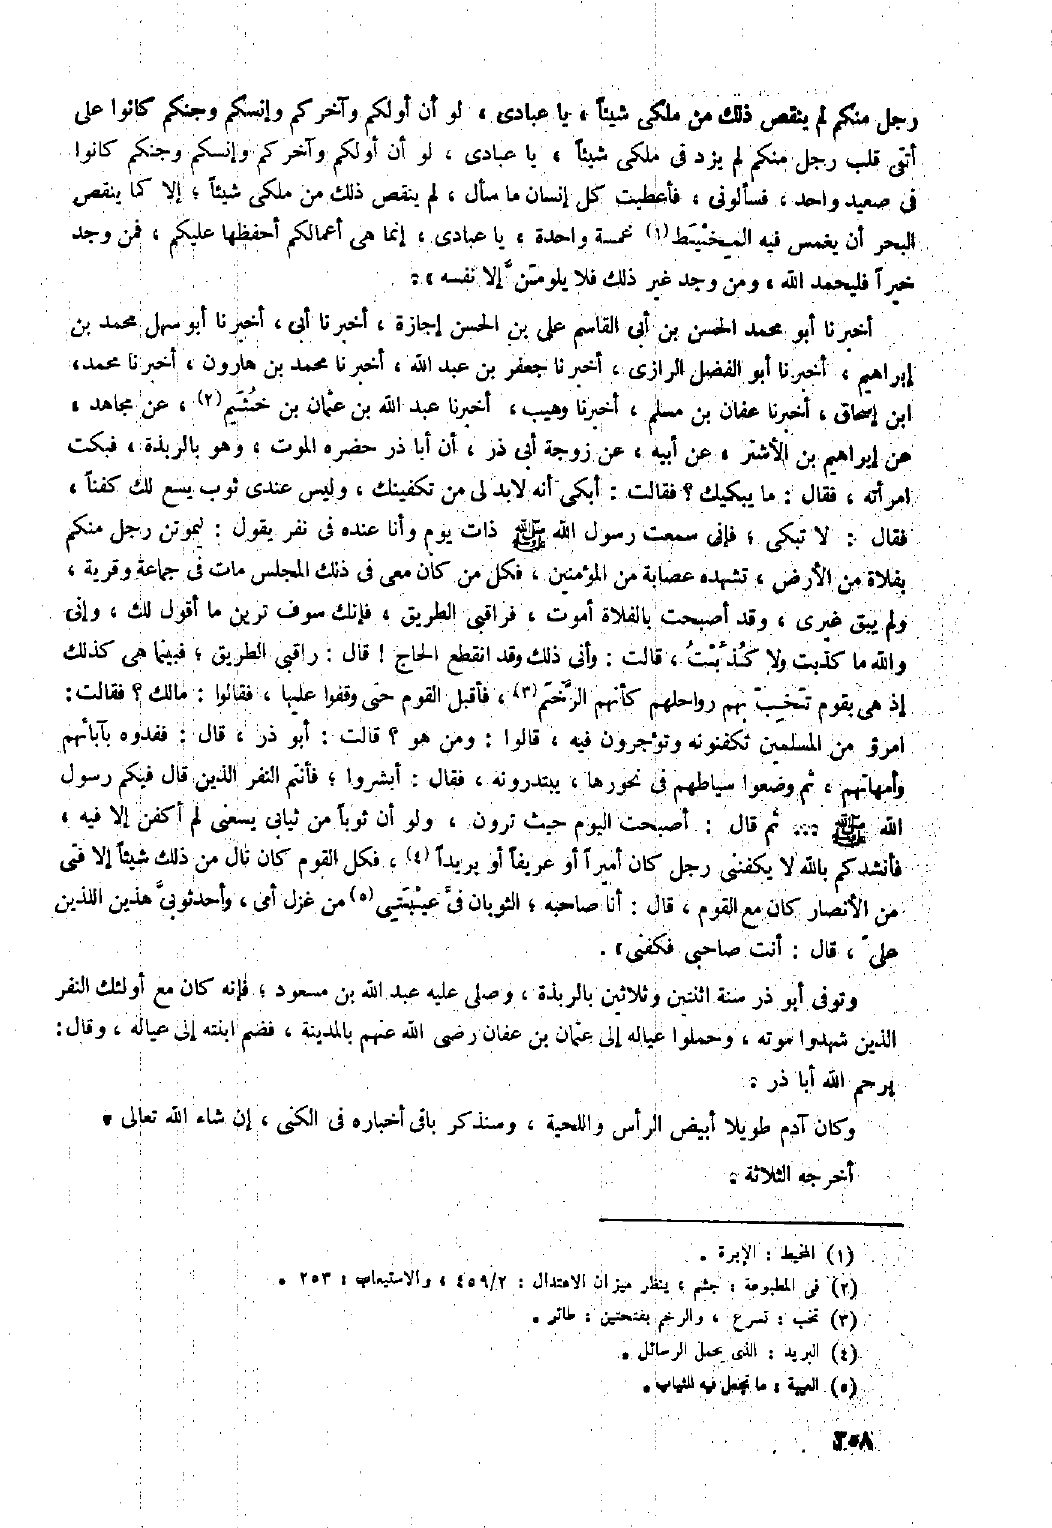 رجل منكم لم ينقص ذلك من ملكى شيئاً ، يا عبادى ، لو أن أولكم وآخركم وإنسكم وجنكم كانوا على
أتقى قلب رجل منكم لم يزد فى ملكى شيئاً ، يا عبادى ، لو أن أولكم وآخركم وإنسكم وجنكم كانوا
فى صعيد واحد ، فسألونى ، فأعطيت كل إنسان ما سأل ، لم ينقص ذلك من ملكى شيئاً ؛ إلا كما ينقص
البحر أن يغمس فيه المِخْيَط(١) غمسة واحدة ، يا عبادى ، إنما هى أعمالكم أحفظها عليكم ، فمن وجد
خيراً فليحمد الله ، ومن وجد غير ذلك فلا يلومَنَّ إلا نفسه » :
أخبرنا أبو محمد الحسن بن أبى القاسم على بن الحسن إجازة ، أخبرنا أبى ، أخبرنا أبو سهل محمد بن
إبراهيم ، أخبرنا أبو الفضل الرازى ، أخبرنا جعفر بن عبد الله ، أخبرنا محمد بن هارون ، أخبرنا محمد،
ابن إسحاق ، أخبرنا عفان بن مسلم ، أخبرنا وهيب ، أخبرنا عبد الله بن عثمان بن خُثَيم(٢) ، عن مجاهد ،
عن إبراهيم بن الأشتر ، عن أبيه ، عن زوجة أبى ذر ، أن أبا ذر حضره الموت ، وهو بالربذة ، فبكت
امرأته ، فقال : ما يبكيك ؟ فقالت : أبكى أنه لابد لى من تكفينك ، وليس عندى ثوب يسع لك كفناً ،
فقال : لا تبكى ؛ فإنى سمعت رسول الله ﷺ ذات يوم وأنا عنده فى نفر يقول : ليموتن رجل منكم
بفلاة من الأرض ، تشهده عصابة من المؤمنين ، فكل من كان معى فى ذلك المجلس مات فى جماعة وقرية ،
ولم يبق غيرى ، وقد أصبحت بالفلاة أموت ، فراقبى الطريق ، فإنك سوف ترين ما أقول لك ، وإنى
والله ما كذبت ولا كُذِبْتُ ، قالت : وأنى ذلك وقد انقطع الحاج ! قال : راقبى الطريق ؛ فبينما هى كذلك
إذ هى بقوم تَخُبّ بهم رواحلهم كأنهم الرَّخَم(٣) ، فأقبل القوم حتى وقفوا عليها ، فقالوا : مالك ؟ فقالت :
امرؤ من المسلمين تكفنونه وتؤجرون فيه ، قالوا : ومن هو ؟ قالت : أبو ذر ، قال : ففدوه بآبائهم
وأمهاتهم ، ثم وضعوا سياطهم فى نحورها ، يبتدرونه ، فقال : أبشروا ؛ فأنتم النفر الذين قال فيكم رسول
الله ﷺ ... ثم قال : أصبحت اليوم حيث ترون ، ولو أن ثوباً من ثيابى يسعنى لم أكفن إلا فيه ،
فأنشدكم بالله لا يكفننى رجل كان أميراً أو عريفاً أو بريداً (٤) ، فكل القوم كان نال من ذلك شيئاً إلا فتى
من الأنصار كان مع القوم ، قال : أنا صاحبه ؛ الثوبان فى عَيْبَتِى(٥) من غزل أمى ، وأحد ثوبىَّ هذين اللذين
علىّ ، قال : أنت صاحبى فكفنى» .
وتوفى أبو ذر سنة اثنتين وثلاثين بالربذة ، وصلى عليه عبد الله بن مسعود ؛ فإنه كان مع أولئك النفر
الذين شهدوا موته ، وحملوا عياله إلى عثمان بن عفان رضى الله عنهم بالمدينة ، فضم ابنته إلى عياله ، وقال :
يرحم الله أبا ذر :
وكان آدم طويلا أبيض الرأس واللحية ، وسنذكر باقى أخباره فى الكنى ، إن شاء الله تعالى •
أخرجه الثلاثة :
(١) المخيط : الإبرة .
(٢) فى المطبوعة : جشم ، ينظر ميزان الاعتدال : ٤٥٩/٢ ، والاستيعاب : ٢٥٣ .
(٣) تخب : تسرع ، والرخم بفتحتين : طائر .
(٤) البريد : الذى يحمل الرسائل .
(٥) العيبة : ما تجعل فيه الثياب .
٣٥٨